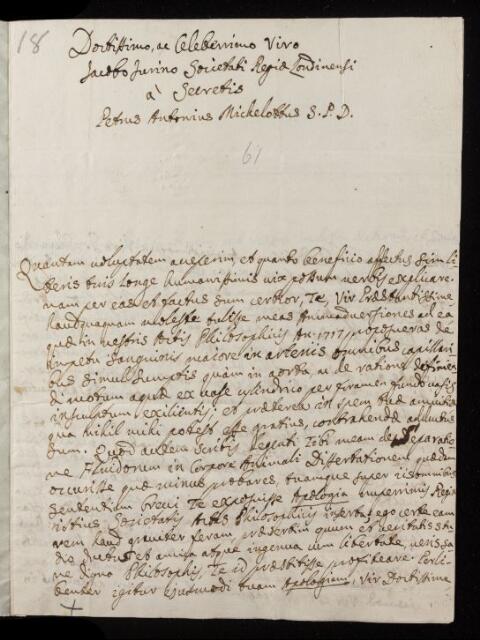 18
Doctissimo, ac Celeberrimo Viro
Jacobo Jurino Societati Regiæ Londinensi
à Secretis
Petrus Antonius Michelottus S. P. D.
61
Quantam voluptatem acceperim, et quanto beneficio affectus sim li-
teris tuis longe humanissimis vix possum verbis explicare.
nam per eas et factus sum certior, Te, Vir Præstantissime
haudquaquam moleste tulisse meas Animadversiones in ea
quæ in vestris Actis Philosophicis An. 1717 proposueras de
impetu Sanguinis maiore in arteriis omnibus capillari-
bus simul sumptis quam in aorta ac de ratione definien-
di motum aquæ ex vase cylindrico per foramen fundo vasis
insculptum exilientis; et præterea in spem tuæ amicitiæ
qua nihil mihi potest esse gratius, contrahendæ adductus
sum. Quod autem scribis legenti Tibi meam de Separatio-
ne Fluidorum in Corpore Animali Dissertationem quædam
occurisse quæ minus probares, tuamque super iis omnibus
sententiam brevi Te exposuisse Apologia nuperrimis Regiæ
istius Societatis Actis Philosophicis inserta, ego certe eam
rem haud graviter feram, præsertim quum et veritatis stu-
dio ductus et amica atque ingenua cum libertate, vera sa-
ne digno Philosophis, Te id præstitisse profiteare. Perli-
benter igitur ejusmodi tuam Apologiam, Vir Doctissime
+